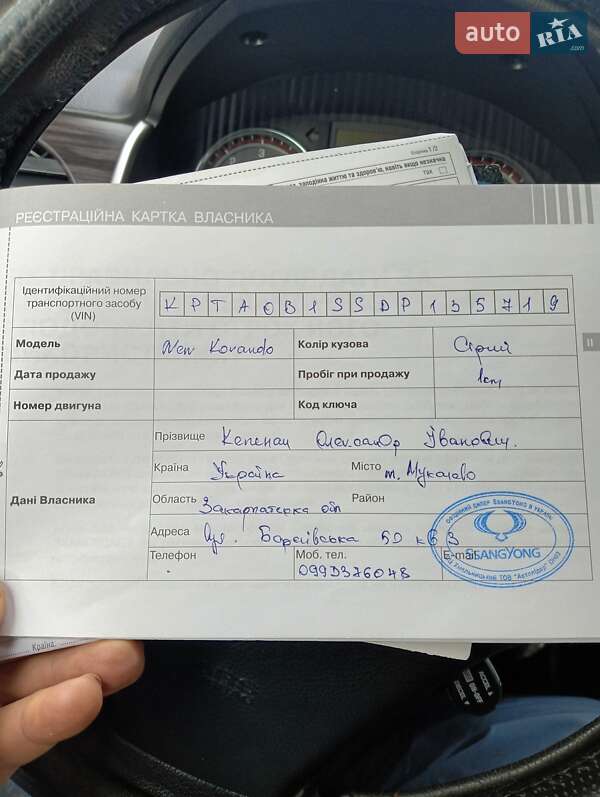 auto RIA.com
Сторінка 1/2
заподіяна життю та здоров'ю, навіть якщо незначна
так
РЕЄСТРАЦІЙНА КАРТКА ВЛАСНИКА
Ідентифікаційний номер
транспортного засобу
(VIN)
KPTA0B1SSDP135719
Модель New Korando Колір кузова Сірий
Дата продажу Пробіг при продажу 1км
Номер двигуна Код ключа
II
Дані Власника
Прізвище Олександр Іванович.
Країна Україна Місто м. Мукачево
Область Закарпатська обл Район
Адреса Вул. 5D к 63
Телефон Моб. тел. E-mail
ОФІЦІЙНИЙ ДИЛЕР SSANGYONG В УКРАЇНІ
SSANGYONG
Країна